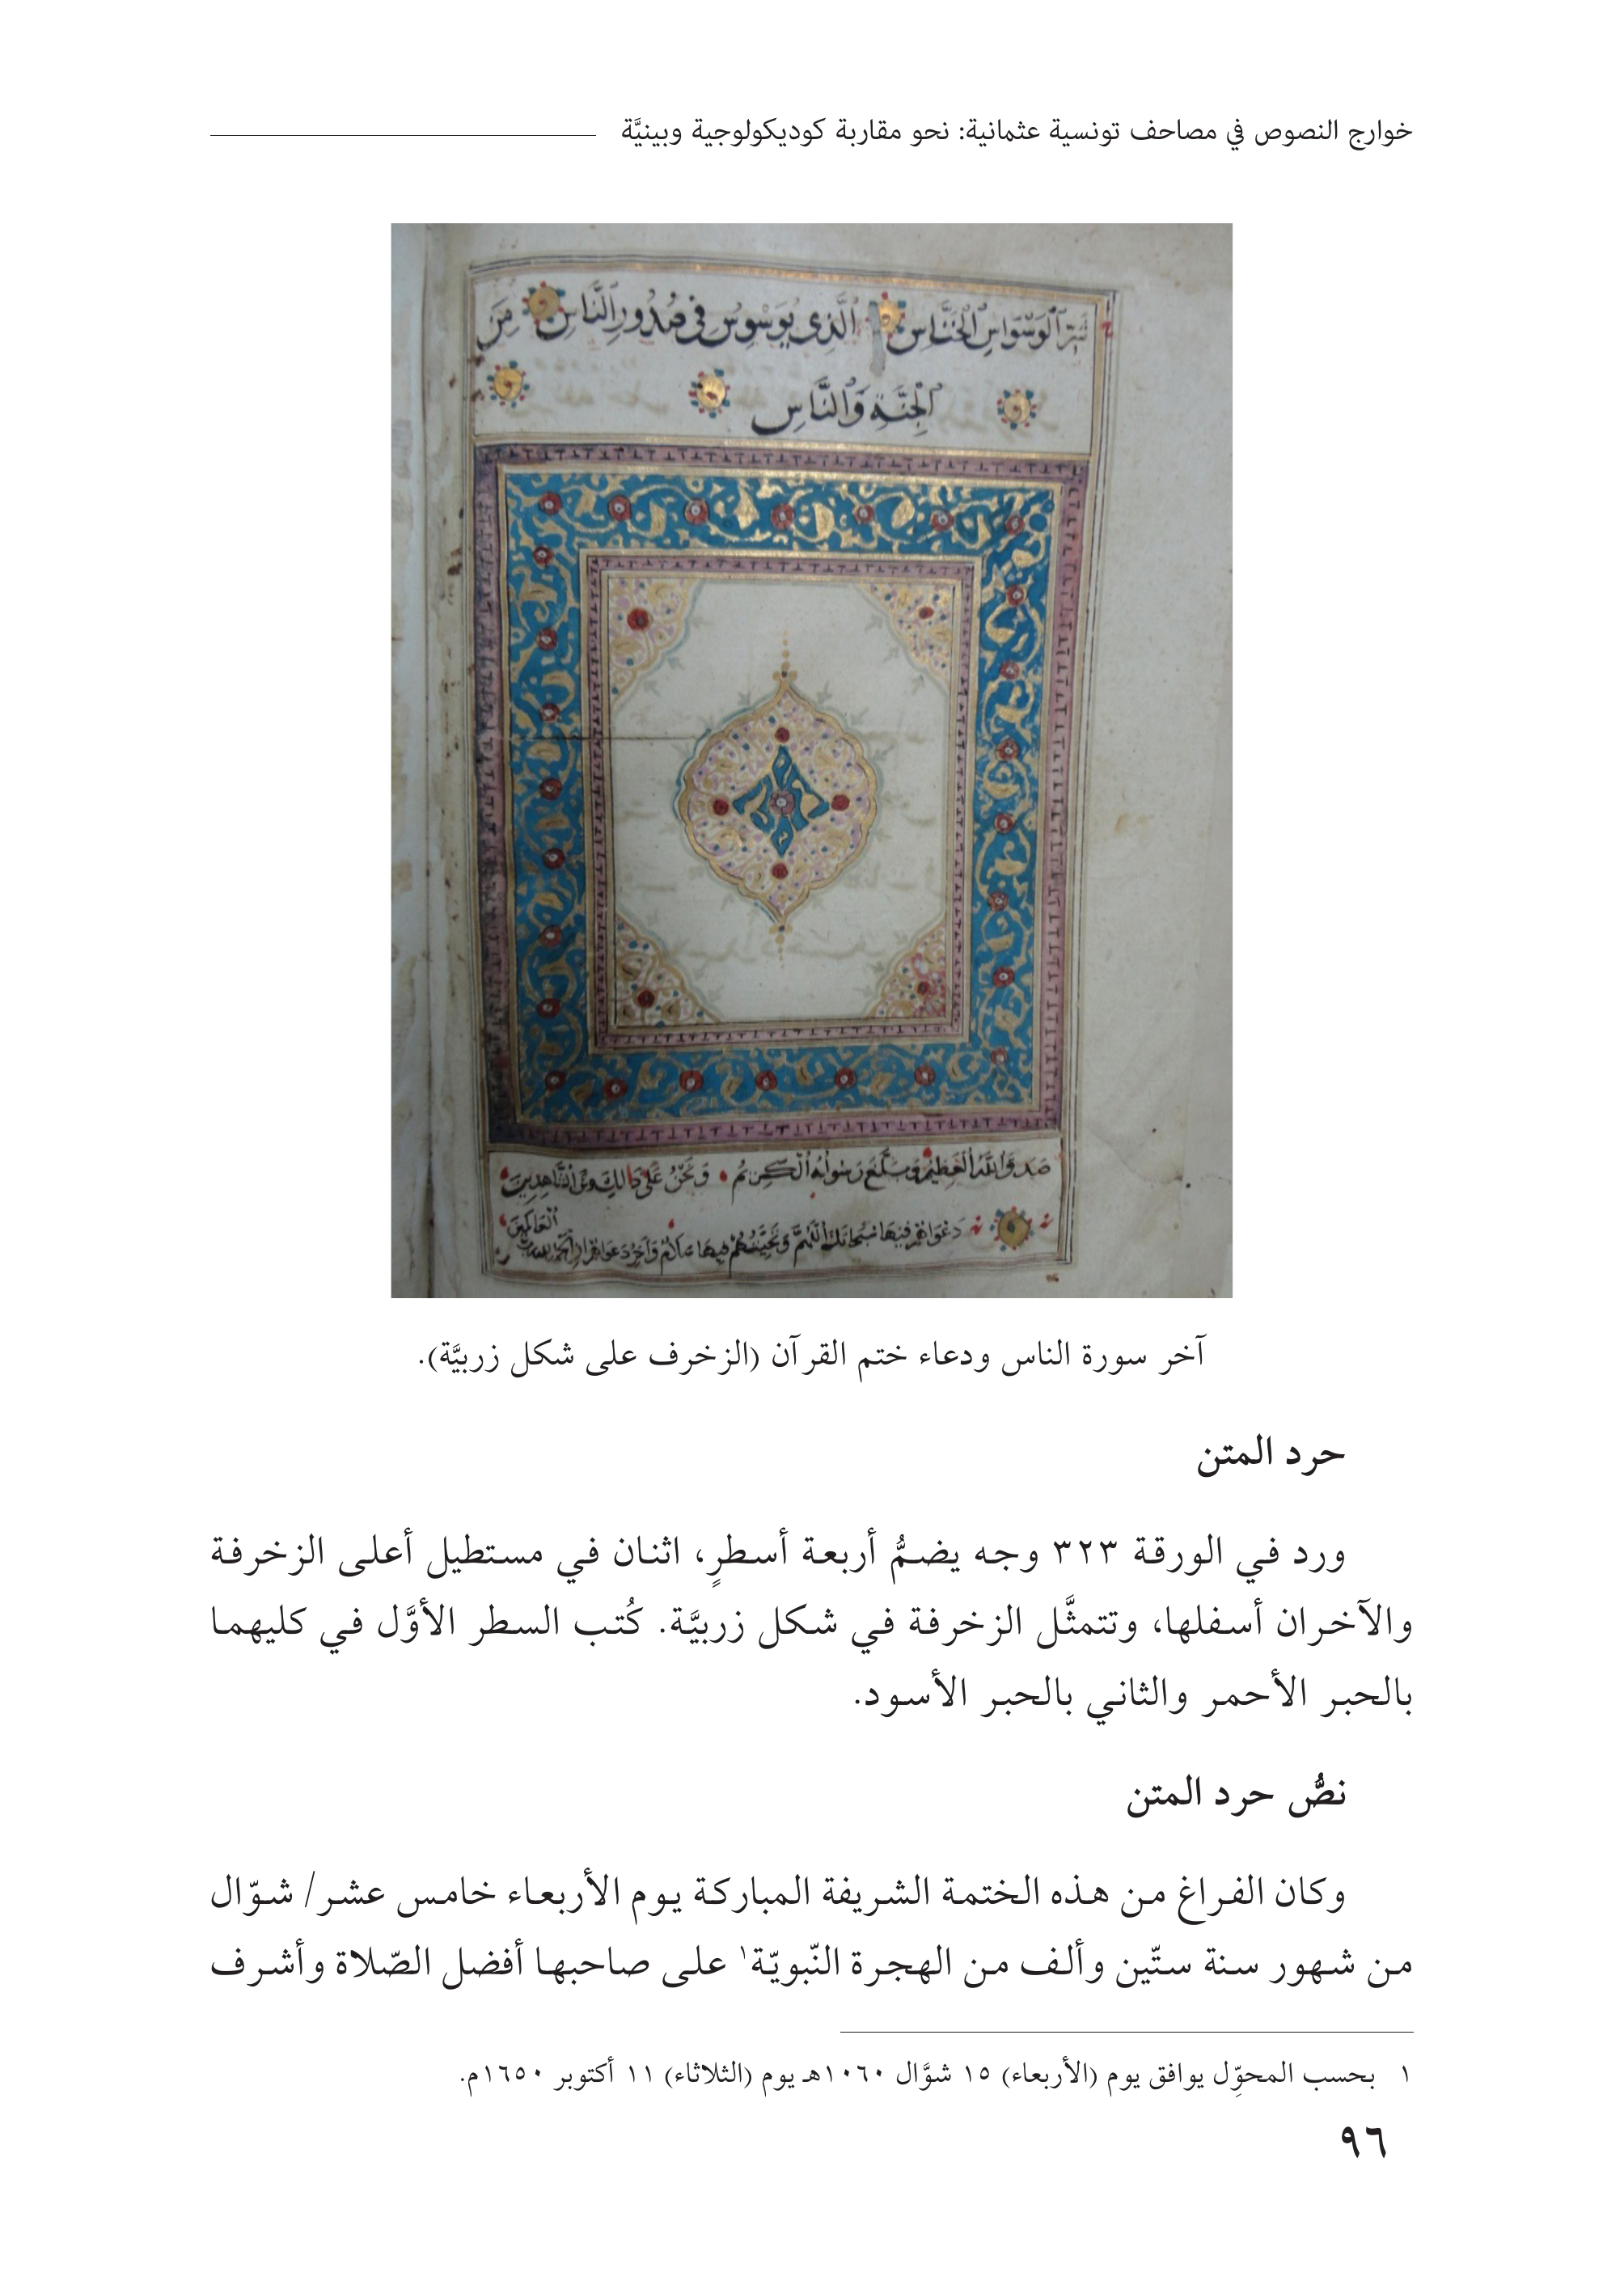 خوارج النصوص في مصاحف تونسية عثمانية: نحو مقاربة كوديكولوجية وبينيَّة
شَرِّ ٱلْوَسْوَاسِ ٱلْخَنَّاسِ ٱلَّذِى يُوَسْوِسُ فِى صُدُورِ ٱلنَّاسِ مِنَ
ٱلْجِنَّةِ وَٱلنَّاسِ
صَدَقَ ٱللَّهُ ٱلْعَظِيمُ وَبَلَّغَ رَسُولُهُ ٱلْكَرِيمُ وَنَحْنُ عَلَى ذَالِكَ مِنَ ٱلشَّاهِدِينَ
دَعْوَاهُمْ فِيهَا سُبْحَانَكَ ٱللَّهُمَّ وَتَحِيَّتُهُمْ فِيهَا سَلَامٌ وَآخِرُ دَعْوَاهُمْ أَنِ ٱلْحَمْدُ لِلَّهِ رَبِّ ٱلْعَالَمِينَ
آخر سورة الناس ودعاء ختم القرآن (الزخرف على شكل زربيَّة).
حرد المتن
ورد في الورقة ٣٢٣ وجه يضمُّ أربعة أسطرٍ، اثنان في مستطيل أعلى الزخرفة
والآخران أسفلها، وتتمثَّل الزخرفة في شكل زربيَّة. كُتب السطر الأوَّل في كليهما
بالحبر الأحمر والثاني بالحبر الأسود.
نصُّ حرد المتن
وكان الفراغ من هذه الختمة الشريفة المباركة يوم الأربعاء خامس عشر/ شوّال
من شهور سنة ستّين وألف من الهجرة النّبويّة١ على صاحبها أفضل الصّلاة وأشرف
١ بحسب المحوِّل يوافق يوم (الأربعاء) ١٥ شوَّال ١٠٦٠هـ يوم (الثلاثاء) ١١ أكتوبر ١٦٥٠م.
٩٦